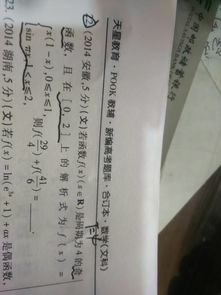 天星教育·POOK教辅·新偏高考题库·合订本·数学(文科)
2(2014安徽,5分)(文)若函数f(x)(x∈R)是周期为4的奇
函数,且在[0,2]上的解析式为f(x)=
{x(1-x),0≤x≤1,
sin πx,1<x≤2, 则f(29/4)+f(41/6)=____.
23.(2014湖南,5分)(文)若f(x)=ln(e³ˣ+1)+ax是偶函数,